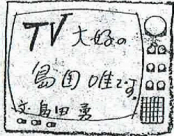 TV大好の
島国唯です
文・島田 勇